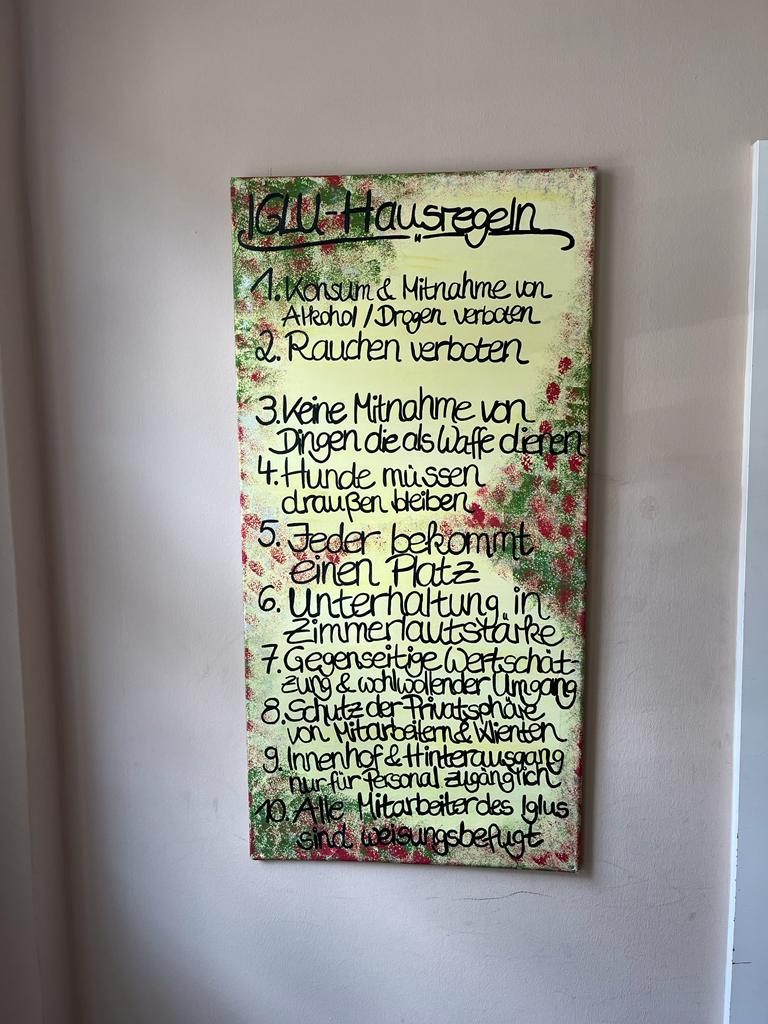 IGLU-Hausregeln
1. Konsum & Mitnahme von
Alkohol / Drogen verboten
2. Rauchen verboten
3. Keine Mitnahme von
Dingen die als Waffe dienen
4. Hunde müssen
draußen bleiben
5. Jeder bekommt
einen Platz
6. Unterhaltung in
Zimmerlautstärke
7. Gegenseitige Wertschät-
zung & wohlwollender Umgang
8. Schutz der Privatsphäre
von Mitarbeitern & Klienten
9. Innenhof & Hinterausgang
nur für Personal zugänglich
10. Alle Mitarbeiter des Iglus
sind weisungsbefugt